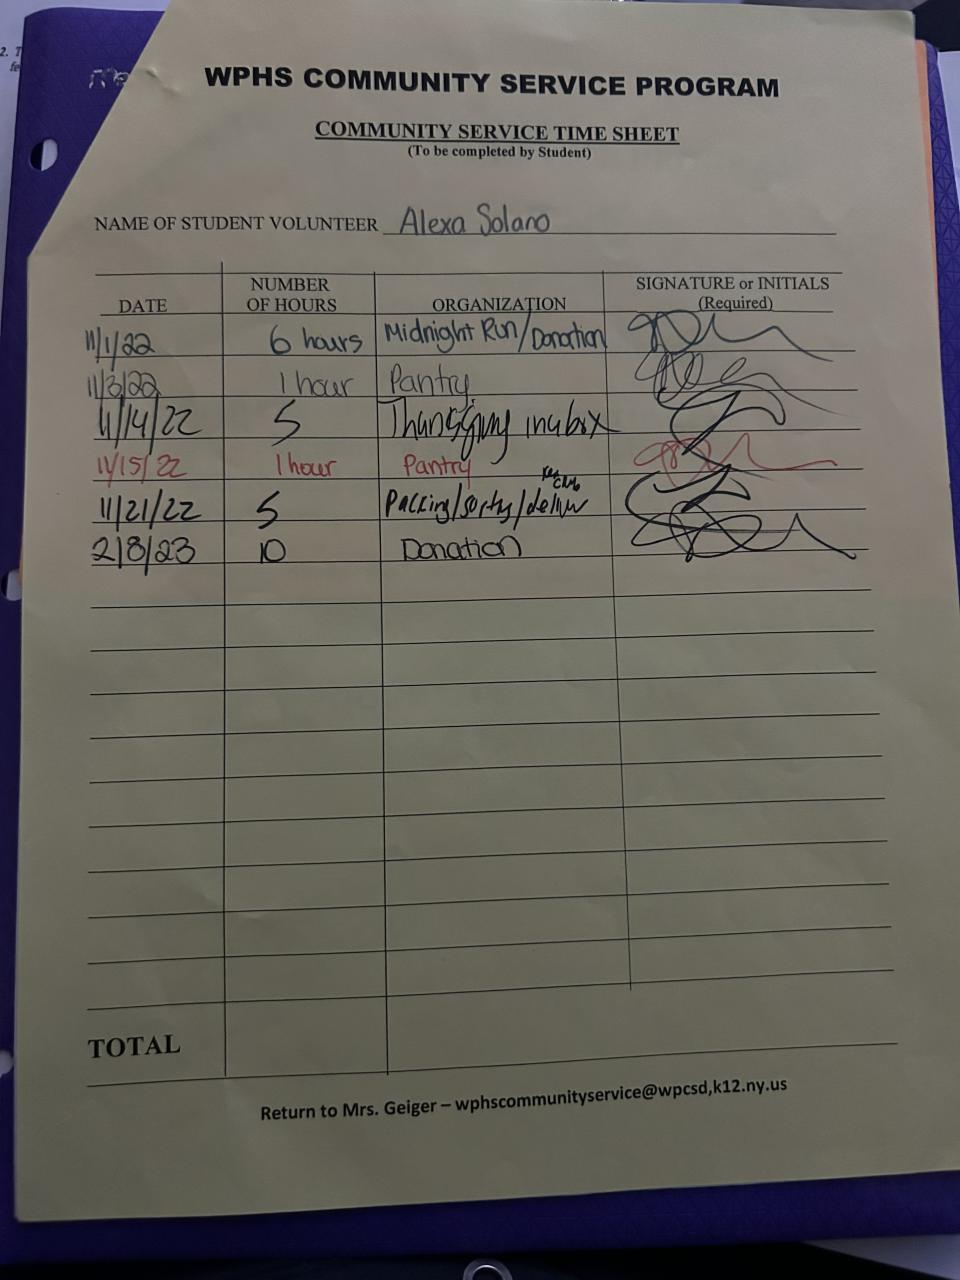 2. T
fe
WPHS COMMUNITY SERVICE PROGRAM
COMMUNITY SERVICE TIME SHEET
(To be completed by Student)
NAME OF STUDENT VOLUNTEER Alexa Solano
DATE NUMBER OF HOURS ORGANIZATION SIGNATURE or INITIALS (Required)
11/1/22 6 hours Midnight Run/Donation
11/3/22 1 hour Pantry
11/14/22 5 in a box
11/15/22 1 hour Pantry
Key Club
11/21/22 5 Packing/sorty/deliver
2/8/23 10 Donation
TOTAL
Return to Mrs. Geiger – wphscommunityservice@wpcsd,k12.ny.us